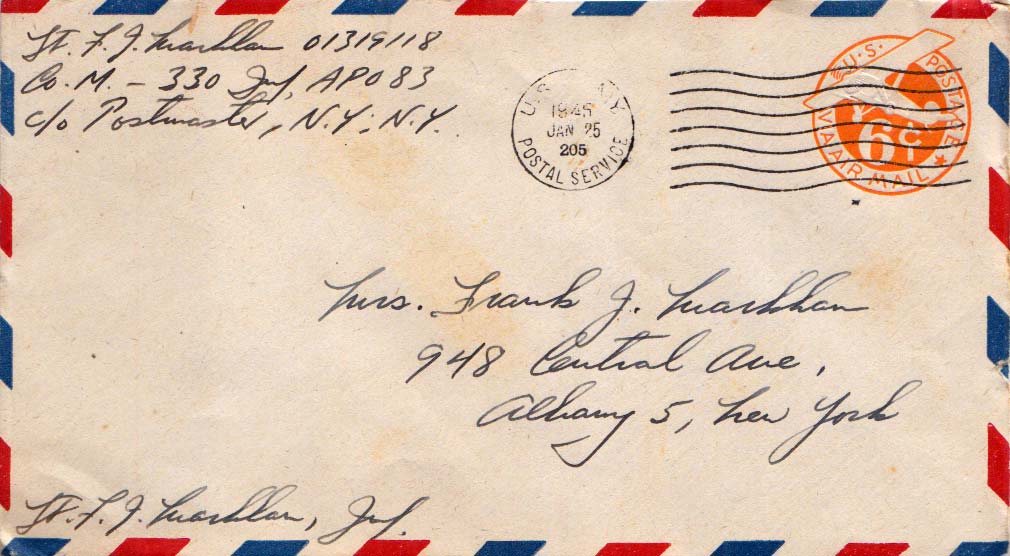 Lt. F. J. Markham 01319118
Co. M. - 330 Inf, APO 83
c/o Postmaster, N.Y., N.Y.
U.S.
POSTAL SERVICE
1945
JAN 25
205
U.S. POSTAGE
6¢
VIA AIR MAIL
Mrs. Frank J. Markham
948 Central Ave,
Albany 5, New York
Lt. F. J. Markham, Inf.